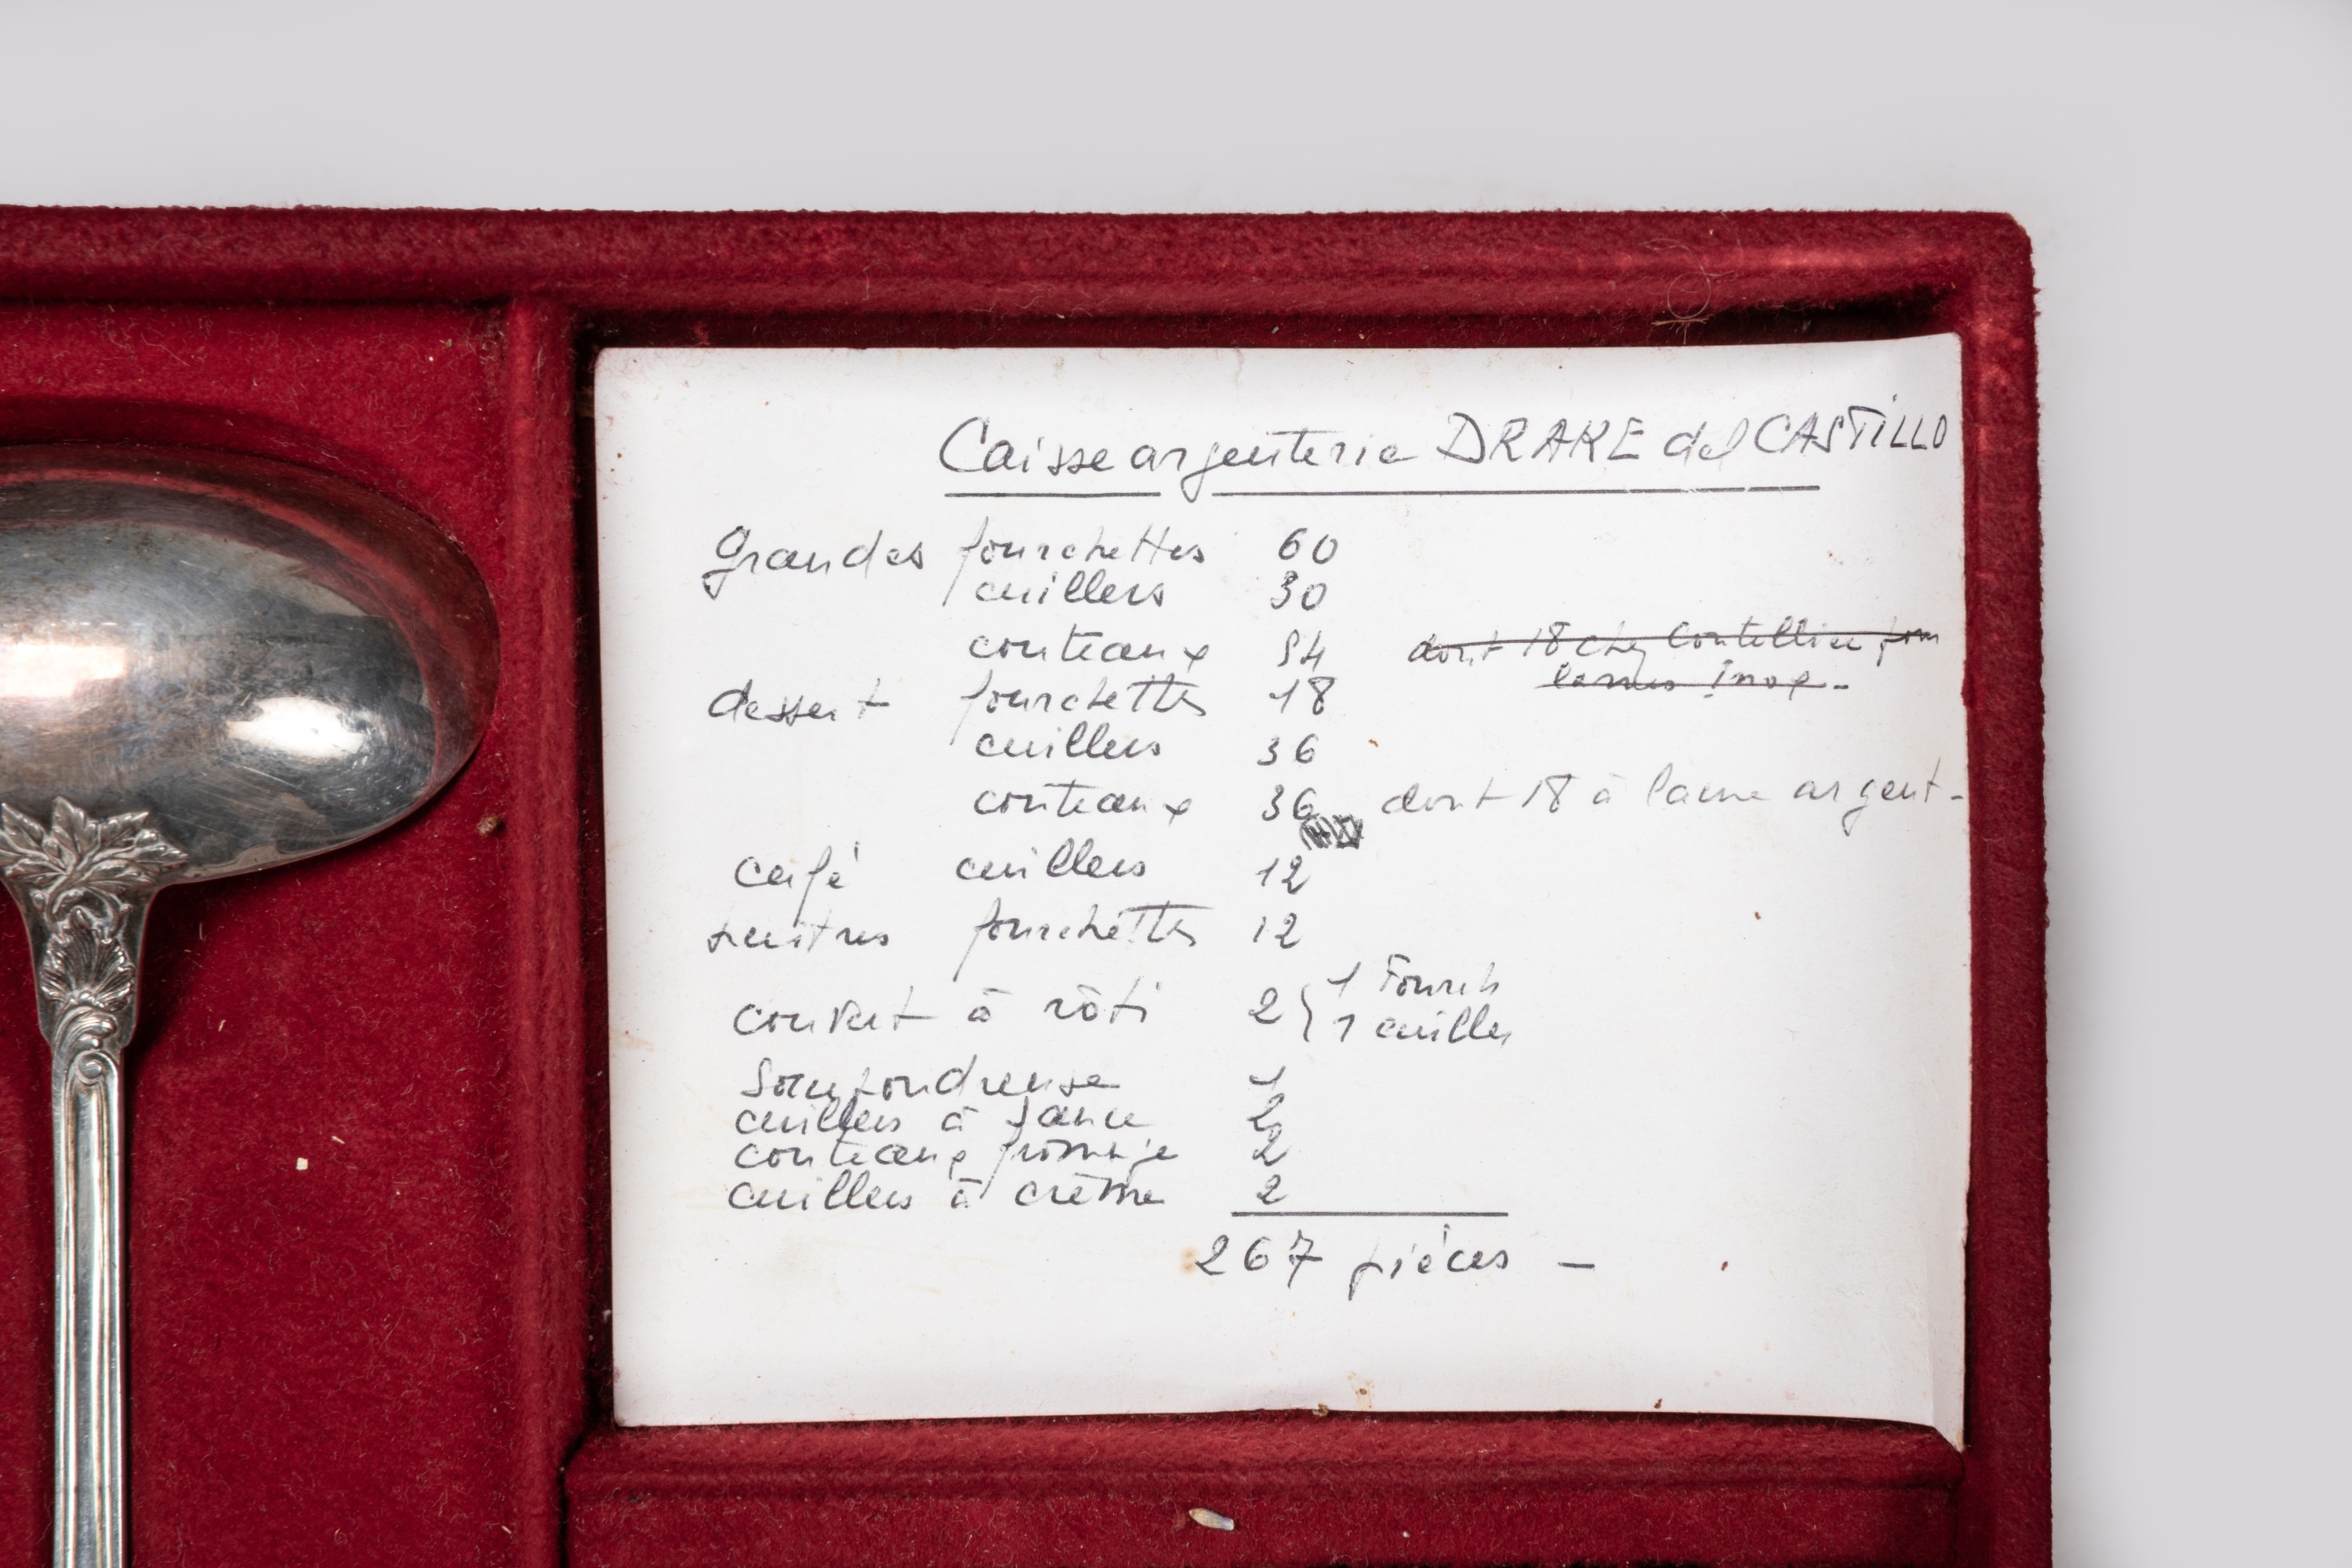 Caisse argenterie DRAKE del CASTILLO
grandes fourchettes 60
cuillers 30
couteaux 54 dont 18 chez Coutellier pour
lames inox -
dessert fourchettes 18
cuillers 36
couteaux 36 dont 18 à lame argent -
café cuillers 12
huitres fourchettes 12
couvert à rôti 2 { 1 Fourch
1 cuiller
Saupoudreuse 1
cuillers à sauce 2
couteaux fromage 2
cuillers à crème 2
267 pièces -